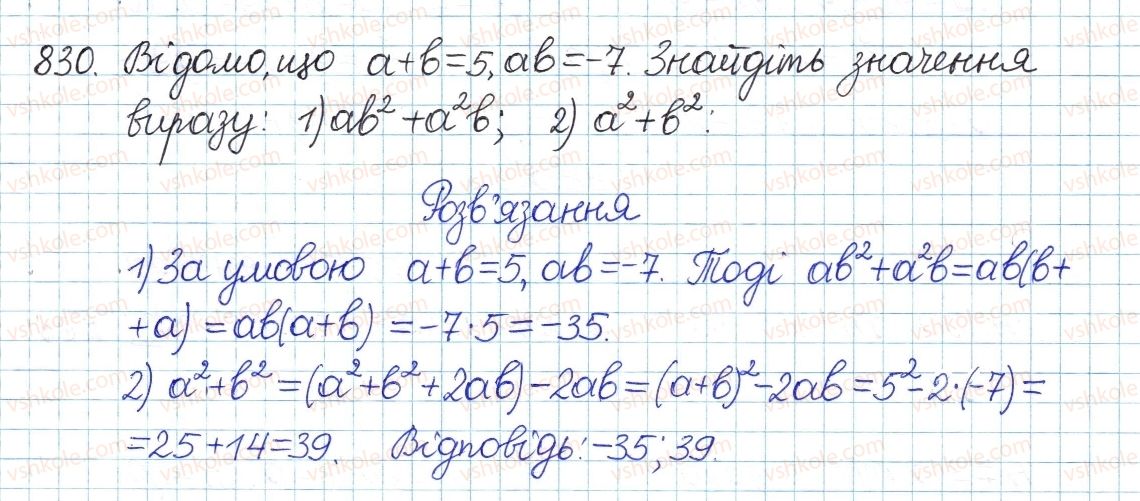 830. Відомо, що a+b=5, ab=-7. Знайдіть значення
виразу: 1) ab²+a²b; 2) a²+b²:
Розв'язання
1) За умовою a+b=5, ab=-7. Тоді ab²+a²b=ab(b+
+a)=ab(a+b)=-7·5=-35.
2) a²+b²=(a²+b²+2ab)-2ab=(a+b)²-2ab=5²-2·(-7)=
=25+14=39. Відповідь: -35; 39.